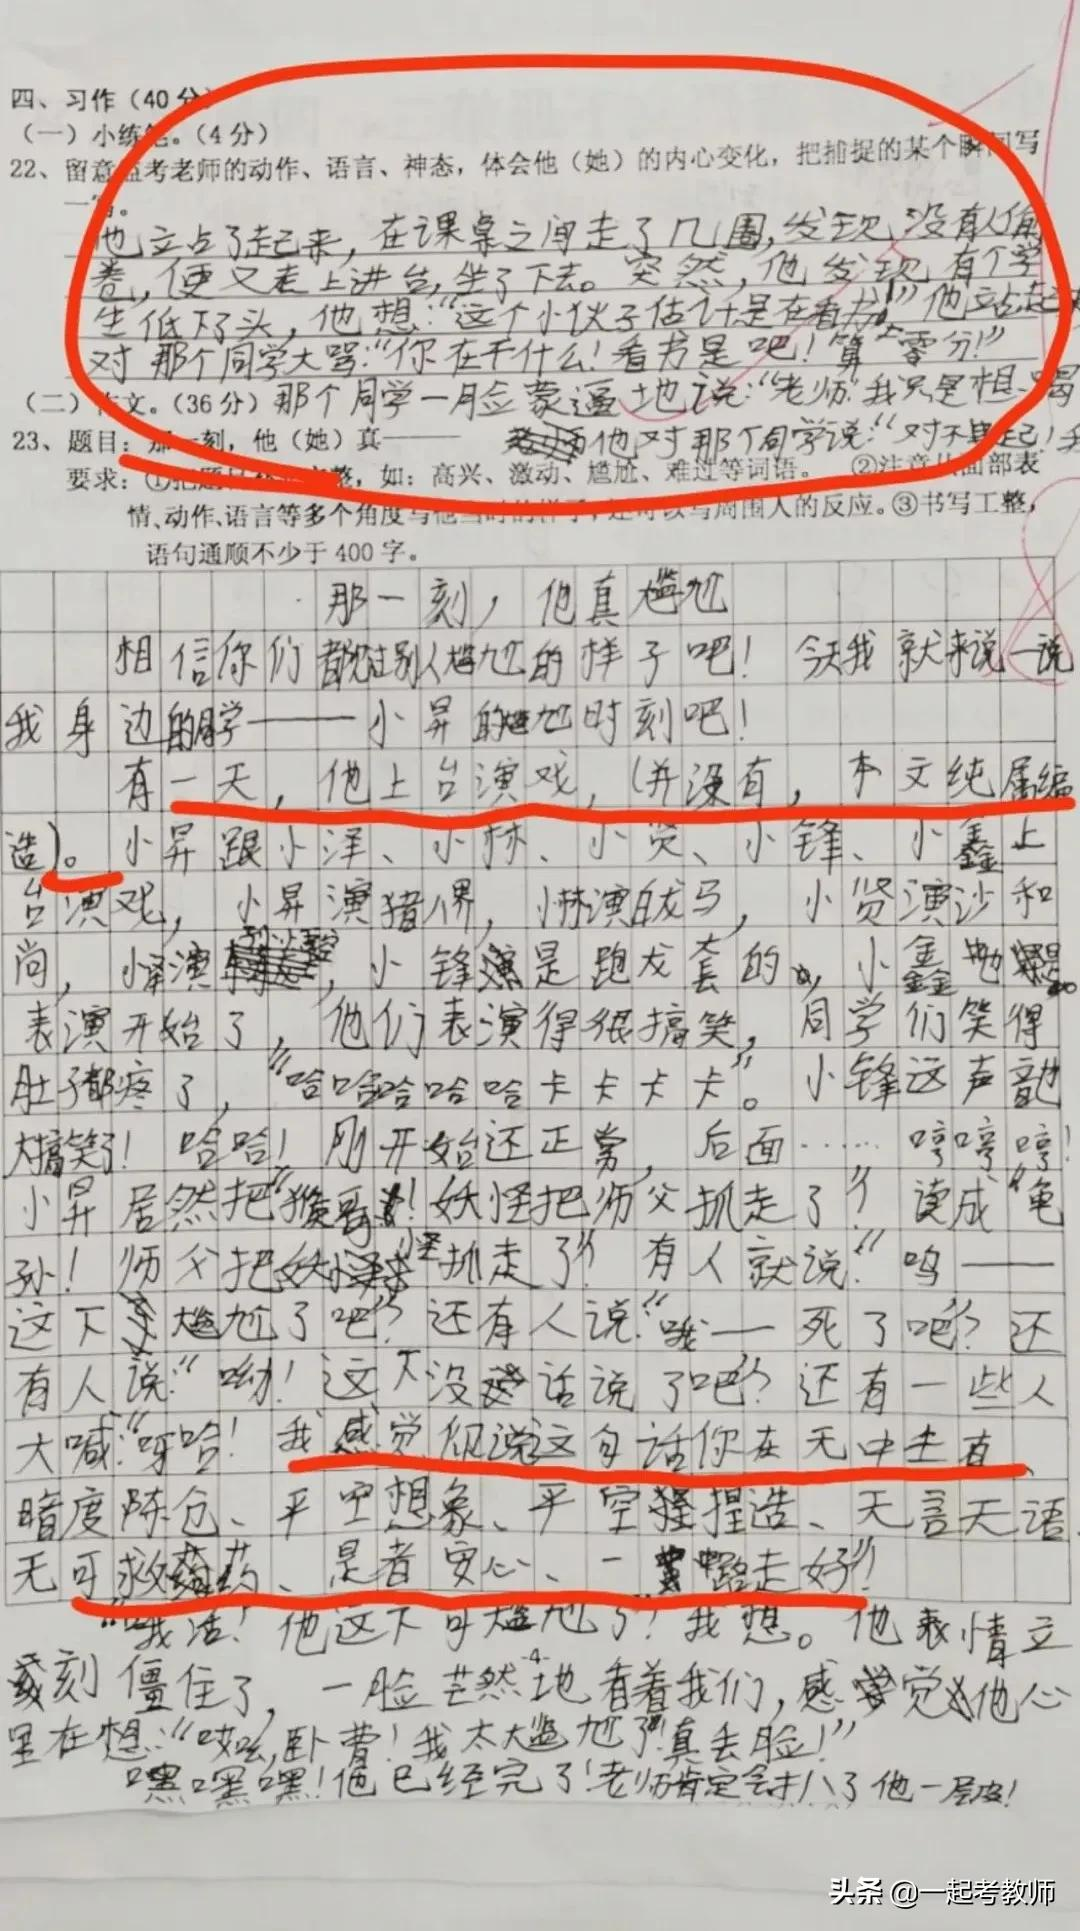 四、习作(40分)
(一)小练笔。(4分)
22、留意监考老师的动作、语言、神态，体会他(她)的内心变化，把捕捉的某个瞬间写
一写。
他立占了起来，在课桌之间走了几圈，发现没有人偷
卷，便又走上讲台，坐了下去。突然，他发现有个学
生低下了头，他想:“这个小伙子估计是在看书!”他立占起
对那个同学大骂:“你在干什么!看书是吧!算零分!”
(二)作文。(36分)那个同学一脸蒙逼地说:“老师我只是想喝
23、题目:那一刻，他(她)真——
他对那个同学说:“对不起!
要求:①把题目补充完整，如:高兴、激动、尴尬、难过等词语。 ②注意从面部表
情、动作、语言等多个角度写他当时的样子，还可以写周围人的反应。③书写工整，
语句通顺不少于400字。
那一刻，他真尴尬
相信你们都见过别人尴尬的样子吧!今天我就来说一说
我身边的同学——小昇的尴尬时刻吧!
有一天，他上台演戏，(并没有，本文纯属编
造)。小昇跟小泽、小林、小贤、小锋、小鑫上
台演戏，小昇演猪八界，小林演白龙马，小贤演沙和
尚，小泽演，小锋是跑龙套的，小鑫也是。
表演开始了，他们表演得很搞笑，同学们笑得
肚子都疼了，“哈哈哈哈哈卡卡卡卡”。小锋这声音也
太搞笑了!哈哈!刚开始还正常，后面……哼哼哼!
小昇居然把“猴哥!妖怪把师父抓走了”!读成“龟
孙!师父把妖怪抓走了”!有人就说:“呜——
这下尴尬了吧”?还有人说:“哦——死了吧”?还
有人说:“呦!这下没话说了吧”?还有一些人
大喊:“呀哈!我感觉你说这句话你在无中生有、
暗度陈仓、平空想象、平空捏造、无言无语、
无可救药、是者安心、一路走好”!
“我活!他这下可尴尬了!我想。他表情立
刻僵住了，一脸芒然地看着我们，感觉他心
里在想:“哎呦，卧曹!我太尴尬了!真丢脸!”
嘿嘿嘿!他已经完了!老师肯定会扒了他一层皮!
4
头条 @一起考教师